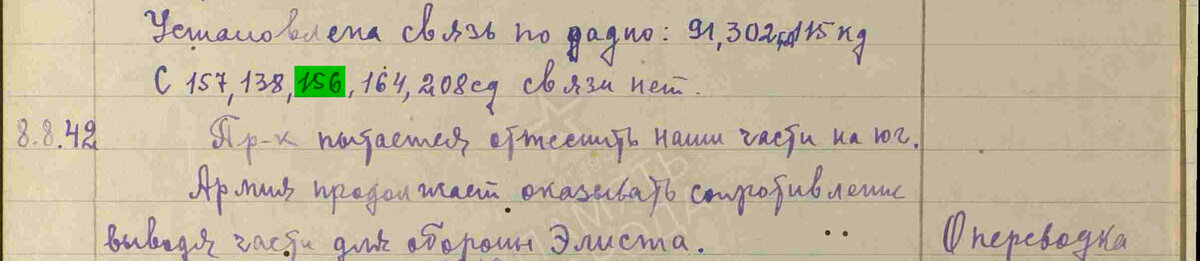 Установлена связь по радио: 91, 302 сд, 115 кд
С 157, 138, 156, 164, 208 сд связи нет.
8.8.42 Пр-к пытается оттеснить наши части на юг.
Армия продолжает оказывать сопротивление
выводя части для обороны Элиста.
Оперсводка